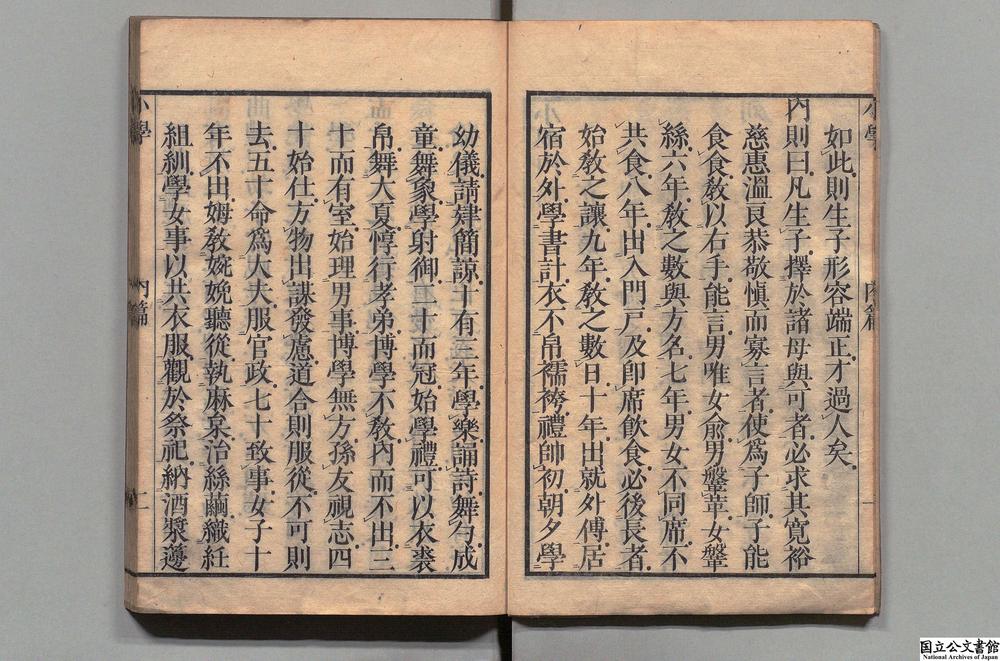 小學
內篇
一
如此則生子形容端正才過人矣
內則曰凡生子擇於諸母與可者必求其寬裕
慈惠溫良恭敬愼而寡言者使爲子師子能
食食敎以右手能言男唯女兪男鞶革女鞶
絲六年敎之數與方名七年男女不同席不
共食八年出入門戶及卽席飮食必後長者
始敎之讓九年敎之數日十年出就外傅居
宿於外學書計衣不帛襦袴禮帥初朝夕學
幼儀請肄簡諒十有三年學樂誦詩舞勺成
童舞象學射御二十而冠始學禮可以衣裘
帛舞大夏惇行孝弟博學不敎內而不出三
十而有室始理男事博學無方孫友視志四
十始仕方物出謀發慮道合則服從不可則
去五十命爲大夫服官政七十致事女子十
年不出姆敎婉娩聽從執麻枲治絲繭織紝
組紃學女事以共衣服觀於祭祀納酒漿籩
小學
內篇
二
国立公文書館
National Archives of Japan